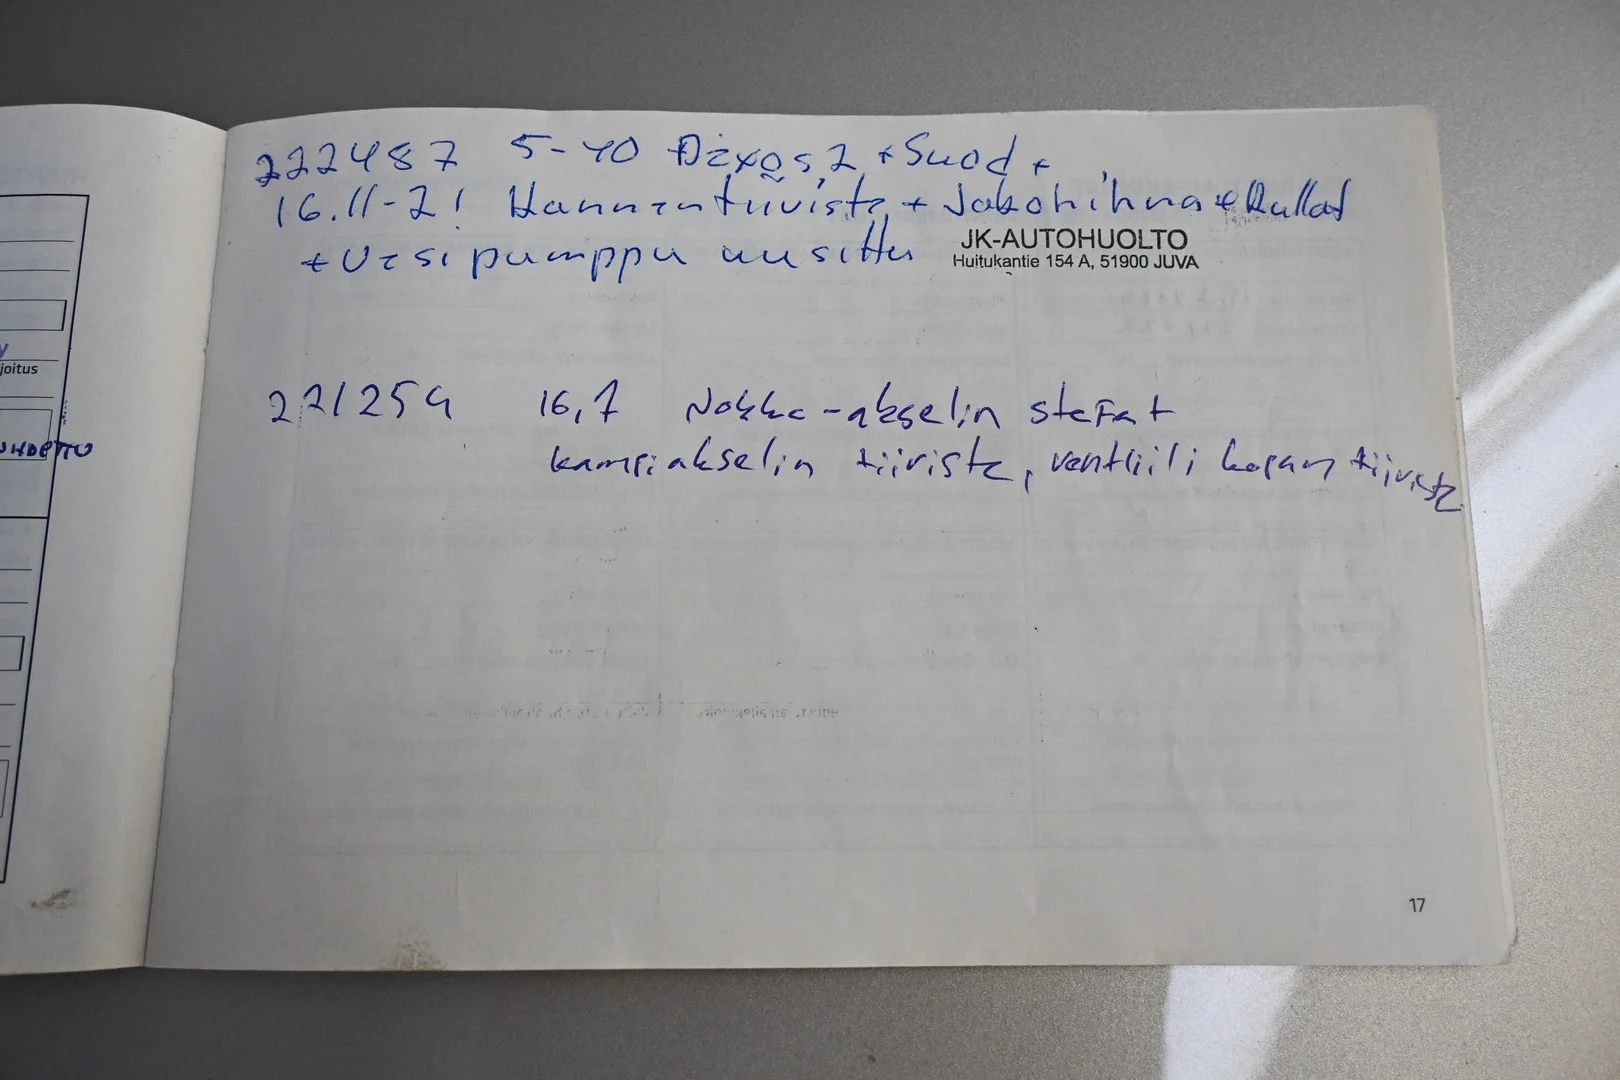 joitus
222487 5-40 Dexos 2 + Suod +
16.11-21 Kannentiiviste + Jakohihna + Rullat
+ Vesipumppu uusittu
JK-AUTOHUOLTO
Huitukantie 154 A, 51900 JUVA
221254 16,7 Nokka-akselin stefat
kampiakselin tiiviste, venttiili kopan tiiviste
17